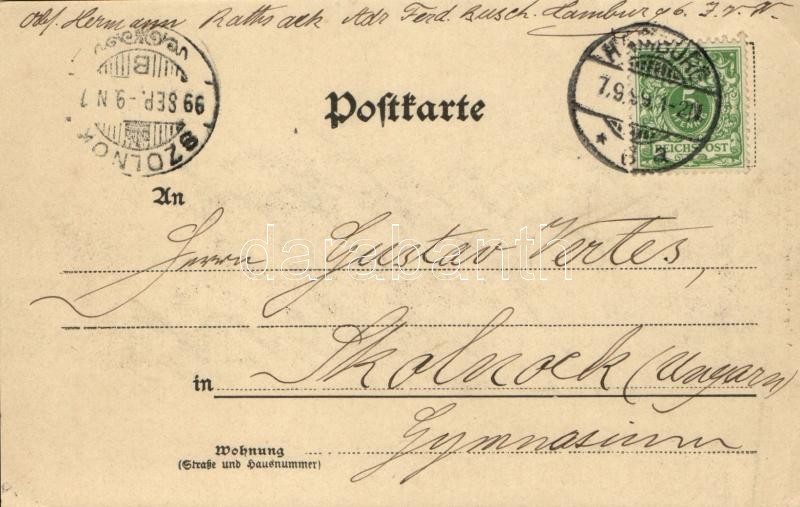 Abs. Hermann Rathsack Adr Ferd. Busch. Hamburg 6. J. v. N.
HAMBURG
7.9.99.1-2N.
* 6 a
5
REICHSPOST
SZOLNOK
99 SEP.-9.N 7
B
Postkarte
An
Herrn Gustav Vertes,
darabanth
in Skolnock (Ungarn)
Gymnasium
Wohnung
(Straße und Hausnummer)